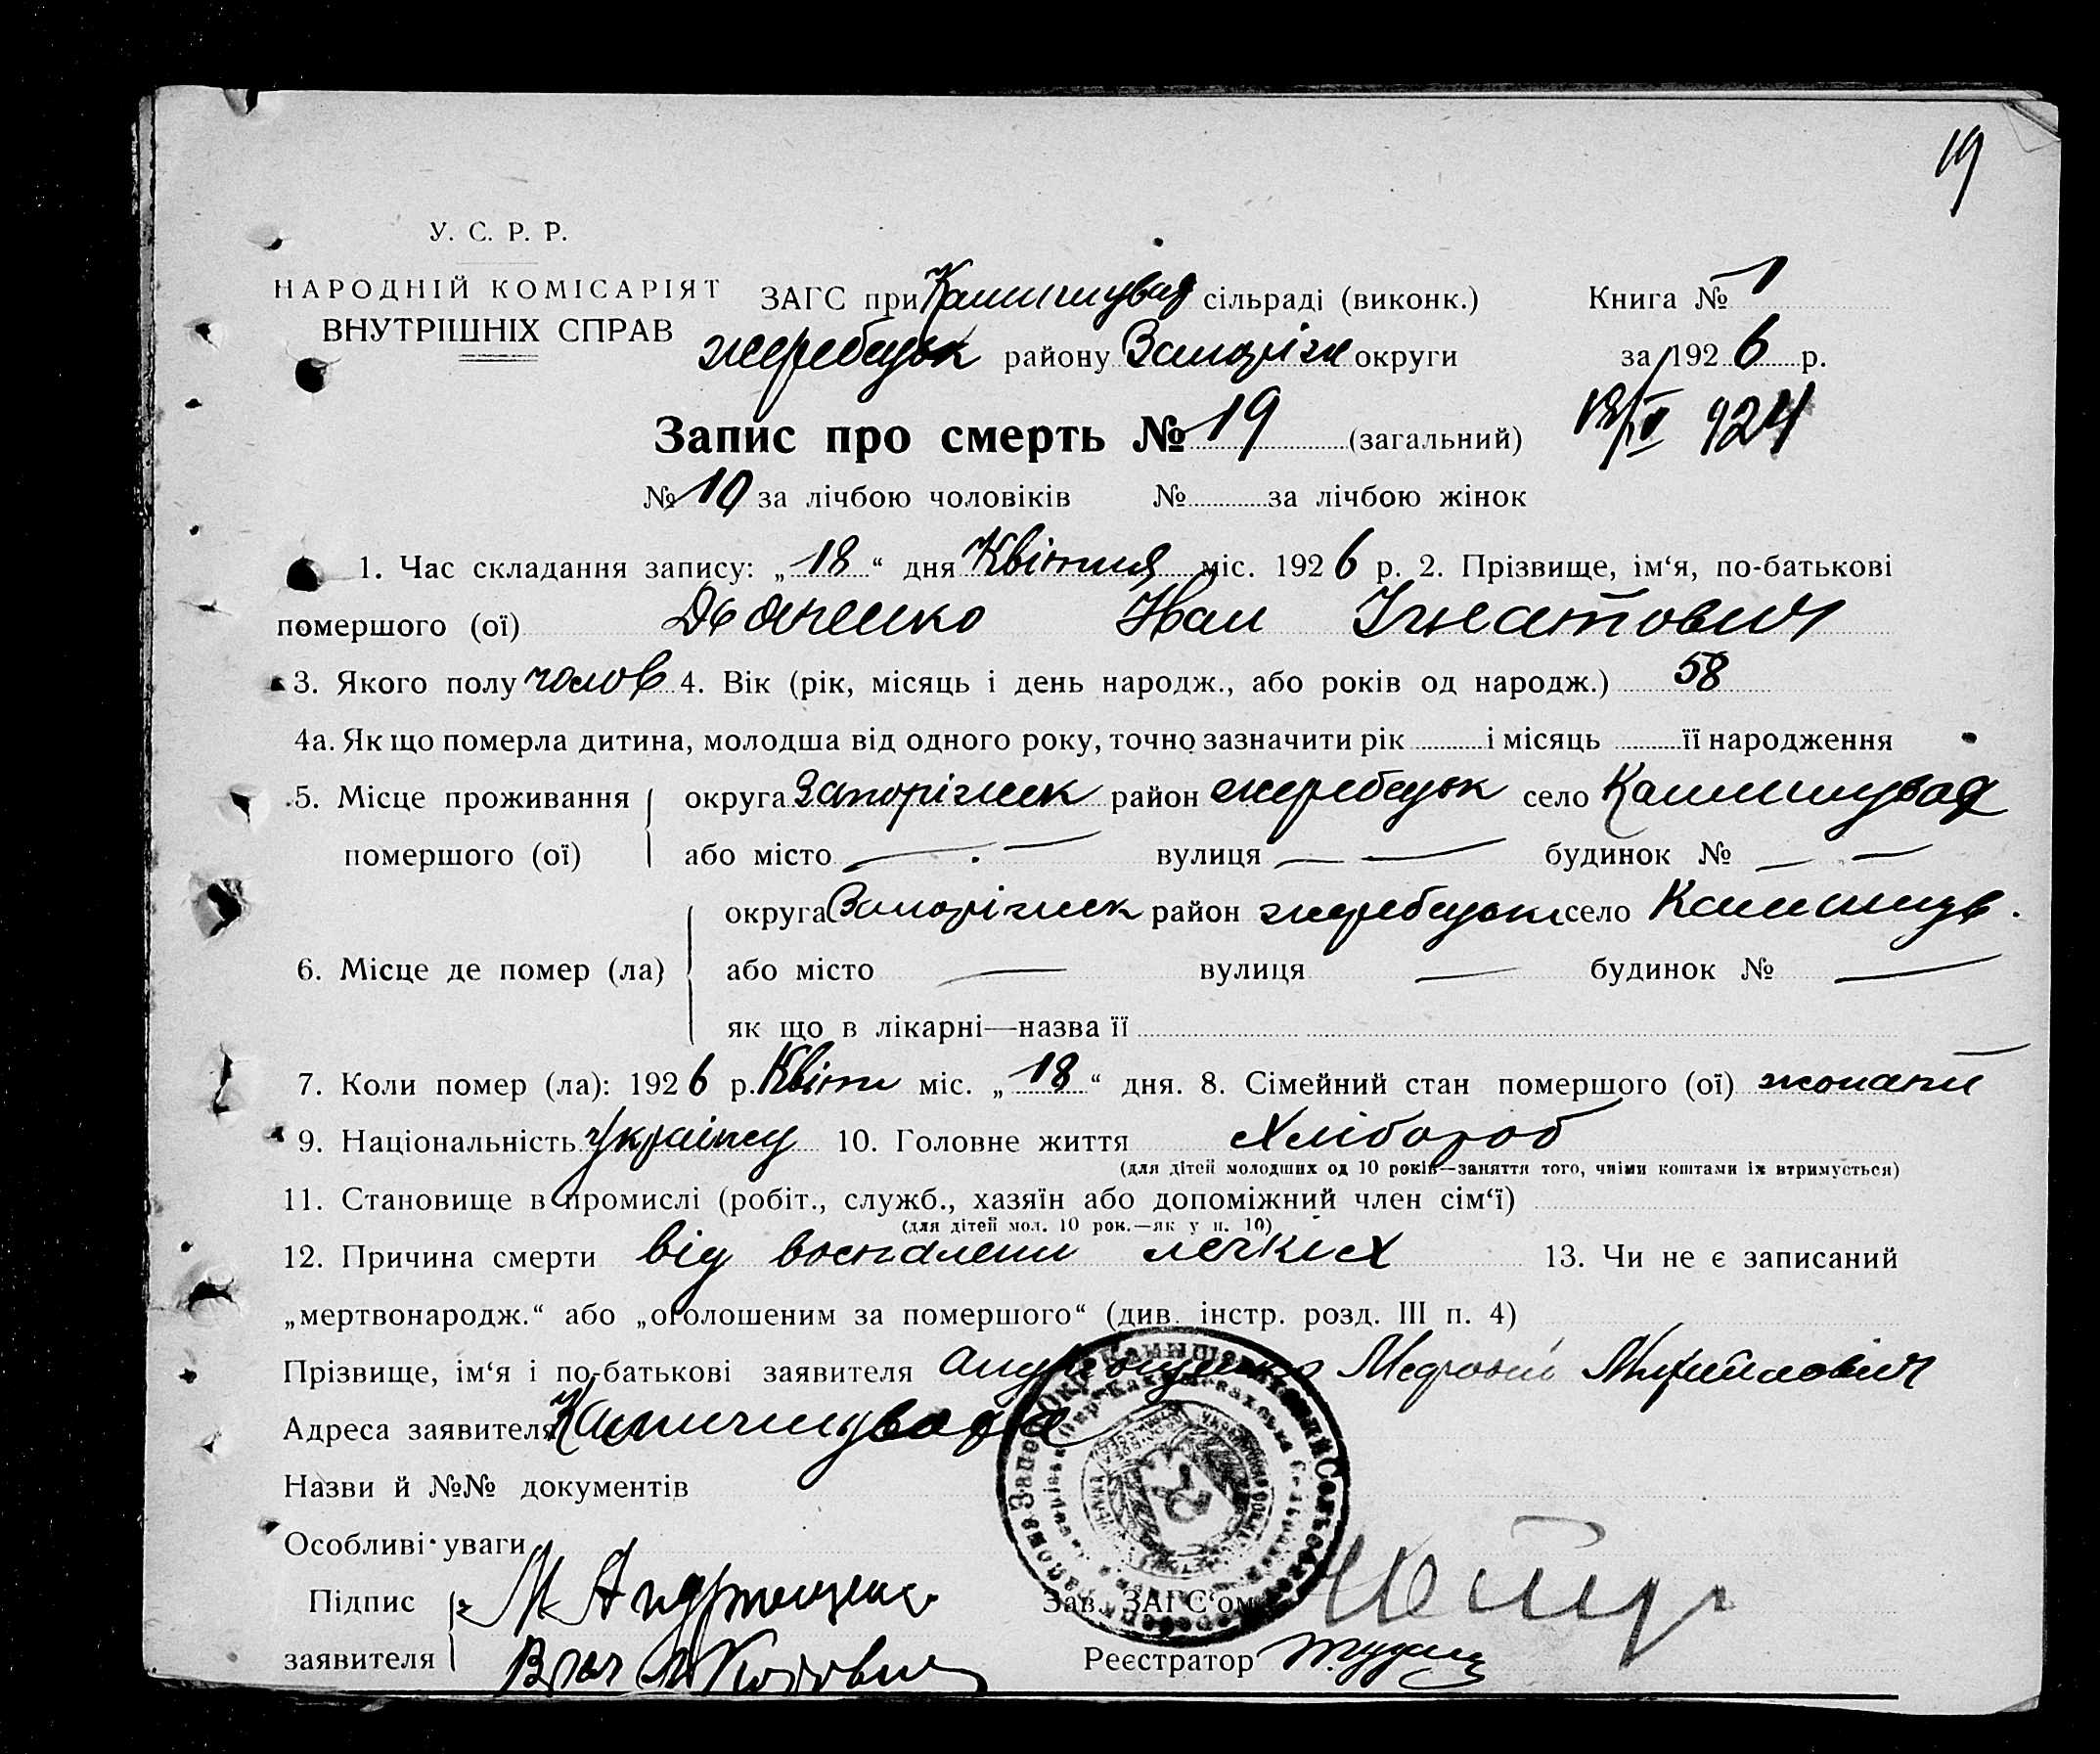 19
У. С. Р. Р.
НАРОДНІЙ КОМІСАРІЯТ
ВНУТРІШНІХ СПРАВ
ЗАГС при Камишувад сільраді (виконк.) Книга № 1
жеребецьк району Запоріж округи за 1926 р.
Запис про смерть № 19 (загальний) 18/IV 924
№ 10 за лічбою чоловіків № за лічбою жінок
1. Час складання запису: „18“ дня Квітня міс. 1926 р. 2. Прізвище, ім‘я, по-батькові
помершого (ої) Дяченко Іван Ігнатович
3. Якого полу чолов 4. Вік (рік, місяць і день народж., або років од народж.) 58
4а. Як що померла дитина, молодша від одного року, точно зазначити рік і місяць її народження
5. Місце проживання округа Запоріжськ район жеребецьк село Камишувад
помершого (ої) або місто — вулиця — — будинок № — —
округа Запоріжськ район жеребецьк село Камишув.
6. Місце де помер (ла) або місто — вулиця — будинок № —
як що в лікарні—назва її
7. Коли помер (ла): 1926 р. Квітн міс. „18“ дня. 8. Сімейний стан помершого (ої) жонатий
9. Національність українц 10. Головне життя Хлібороб
(для дітей молодших од 10 років—заняття того, чиїми коштами їх втримується)
11. Становище в промислі (робіт., служб., хазяїн або допоміжний член сім‘ї)
(для дітей мол. 10 рок.—як у п. 10)
12. Причина смерти від воспалени легких 13. Чи не є записаний
„мертвонародж.“ або „оголошеним за помершого“ (див. інстр. розд. III п. 4)
Прізвище, ім‘я і по-батькові заявителя Михайлович
Адреса заявителя Камишувада
Назви й №№ документів
Особливі уваги
Підпис М Андрющенко Зав. ЗАГС‘ом
заявителя Врач Реєстратор